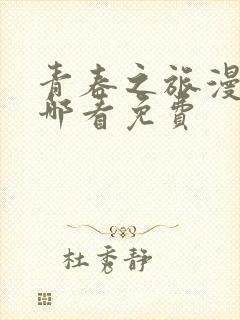 青春之旅漫
那看免费
杜秀静